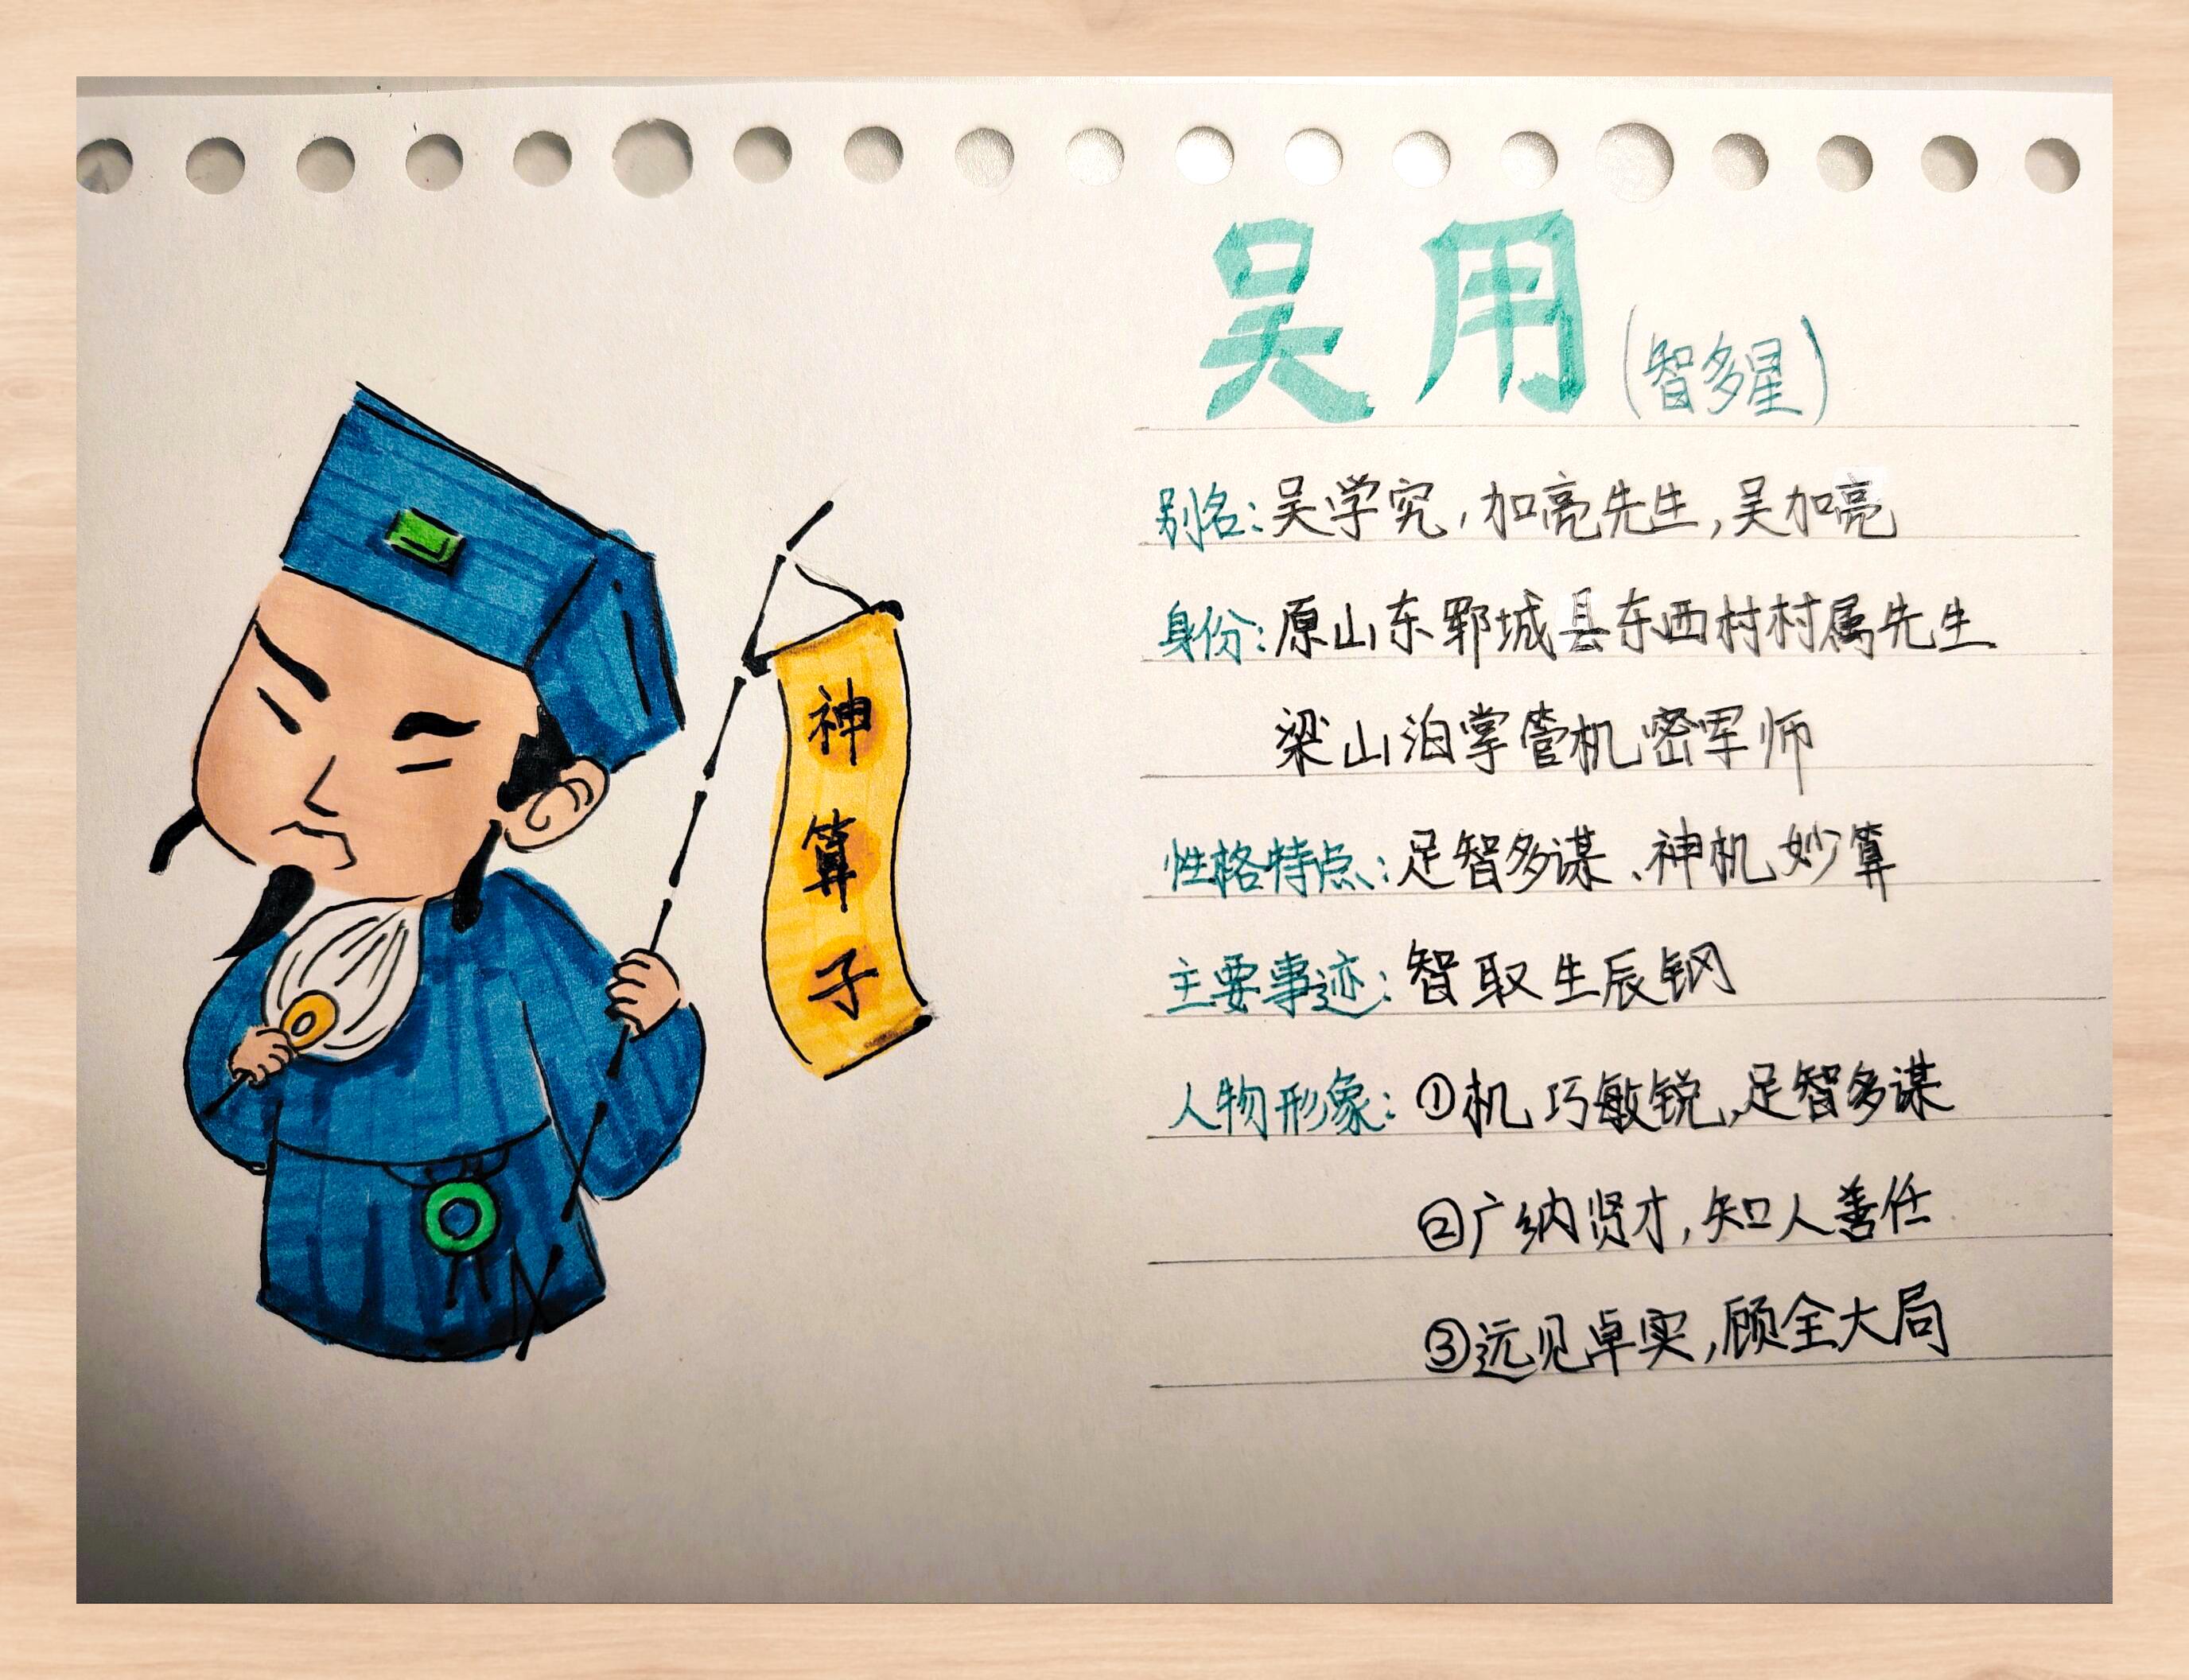 神算子
吴用(智多星)
别名:吴学究,加亮先生,吴加亮
身份:原山东郓城县东西村村属先生
梁山泊掌管机密军师
性格特点:足智多谋、神机妙算
主要事迹:智取生辰钢
人物形象:①机巧敏锐,足智多谋
②广纳贤才,知人善任
③远见卓实,顾全大局